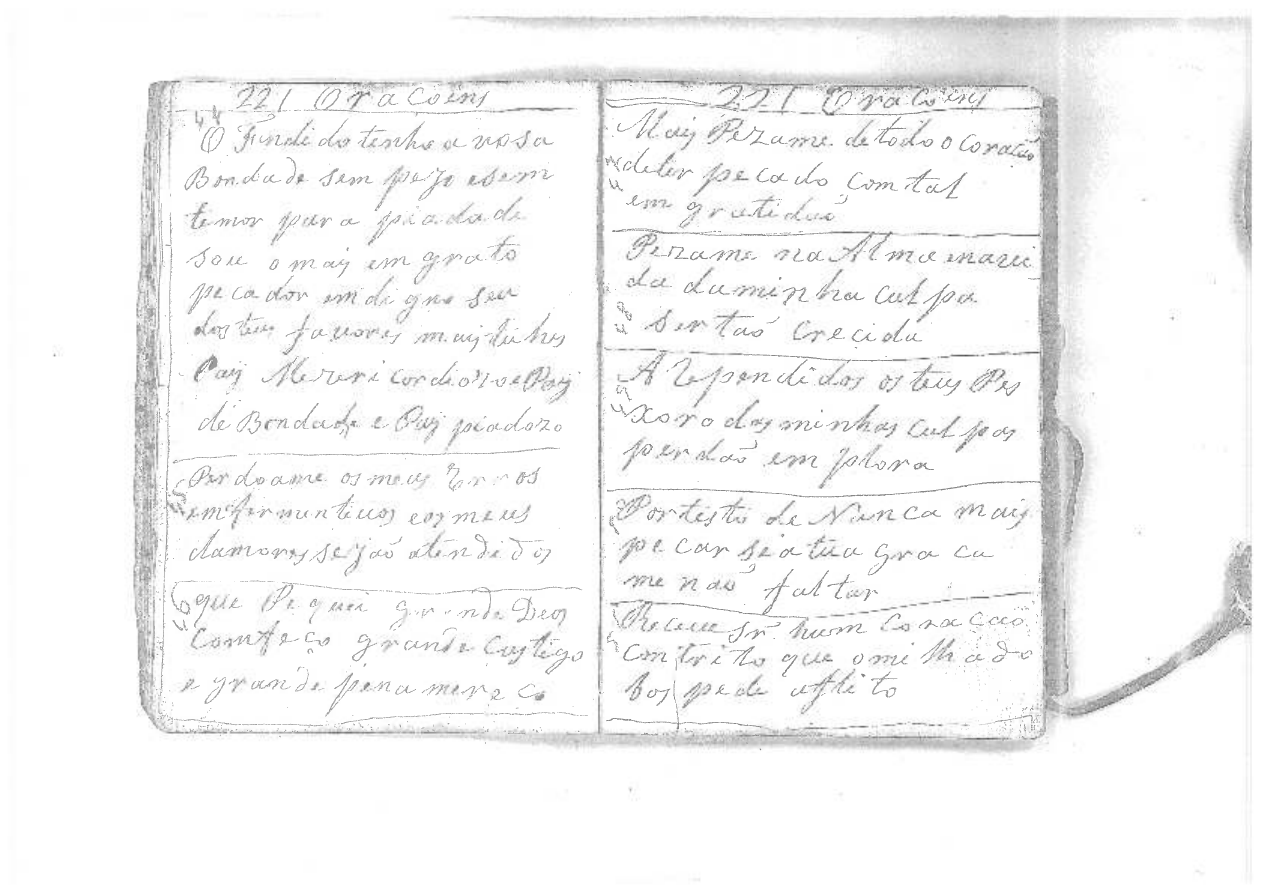 221 Oracoins
44
O Fundido tenho a vosa
Bondade sem pejo esem
temor para piadade
sou o maij em grato
pecador emdigno seu
dosteus favores maistiches
Paij Mezericordiozo e Paij
de Bondade e Paij piadozo
45
Perdoame osmeus Erros
emfermenteuos eosmeus
clamores sejaõ atendidos
46
que Pequei grande Deos
Comfeço grande Castigo
e grande pena mereco
221 Oracoins
Maij Pezame detodo o coração
deter pecado comtal
emgratidaõ
Pezame na Alma enavi
da daminha culpa
48
sertaõ Crecida
A Rependidos osteus Pes
xoro das minhas culpas
perdaõ em plora
Portesto de Nunca mais
pecar seatua graca
me naõ faltar
Receue Sr. hum Coracaõ
Contrito que omilhado
bos pede aflito